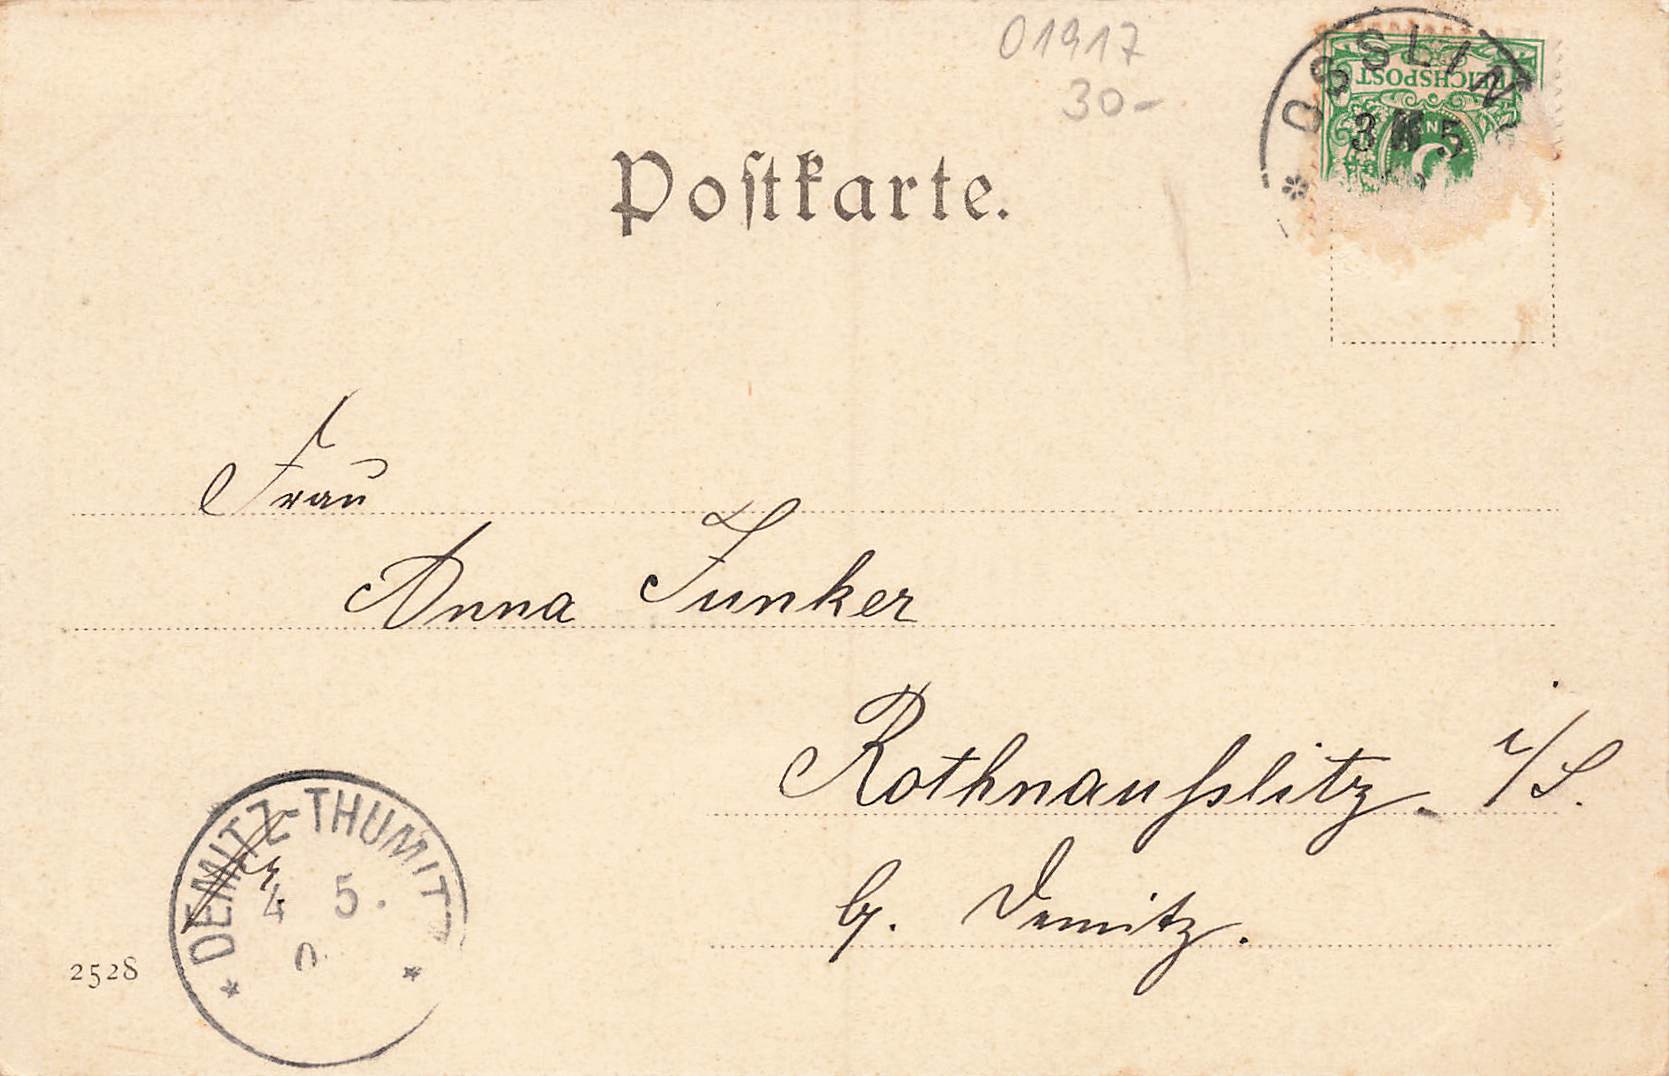 01917
30-
OSSLIN
REICHSPOST
3 5
Postkarte.
Frau
Anna Junker
Rothnaußlitz i/S.
b/. Demitz.
DEMITZ-THUMITZ
4 5.
2528